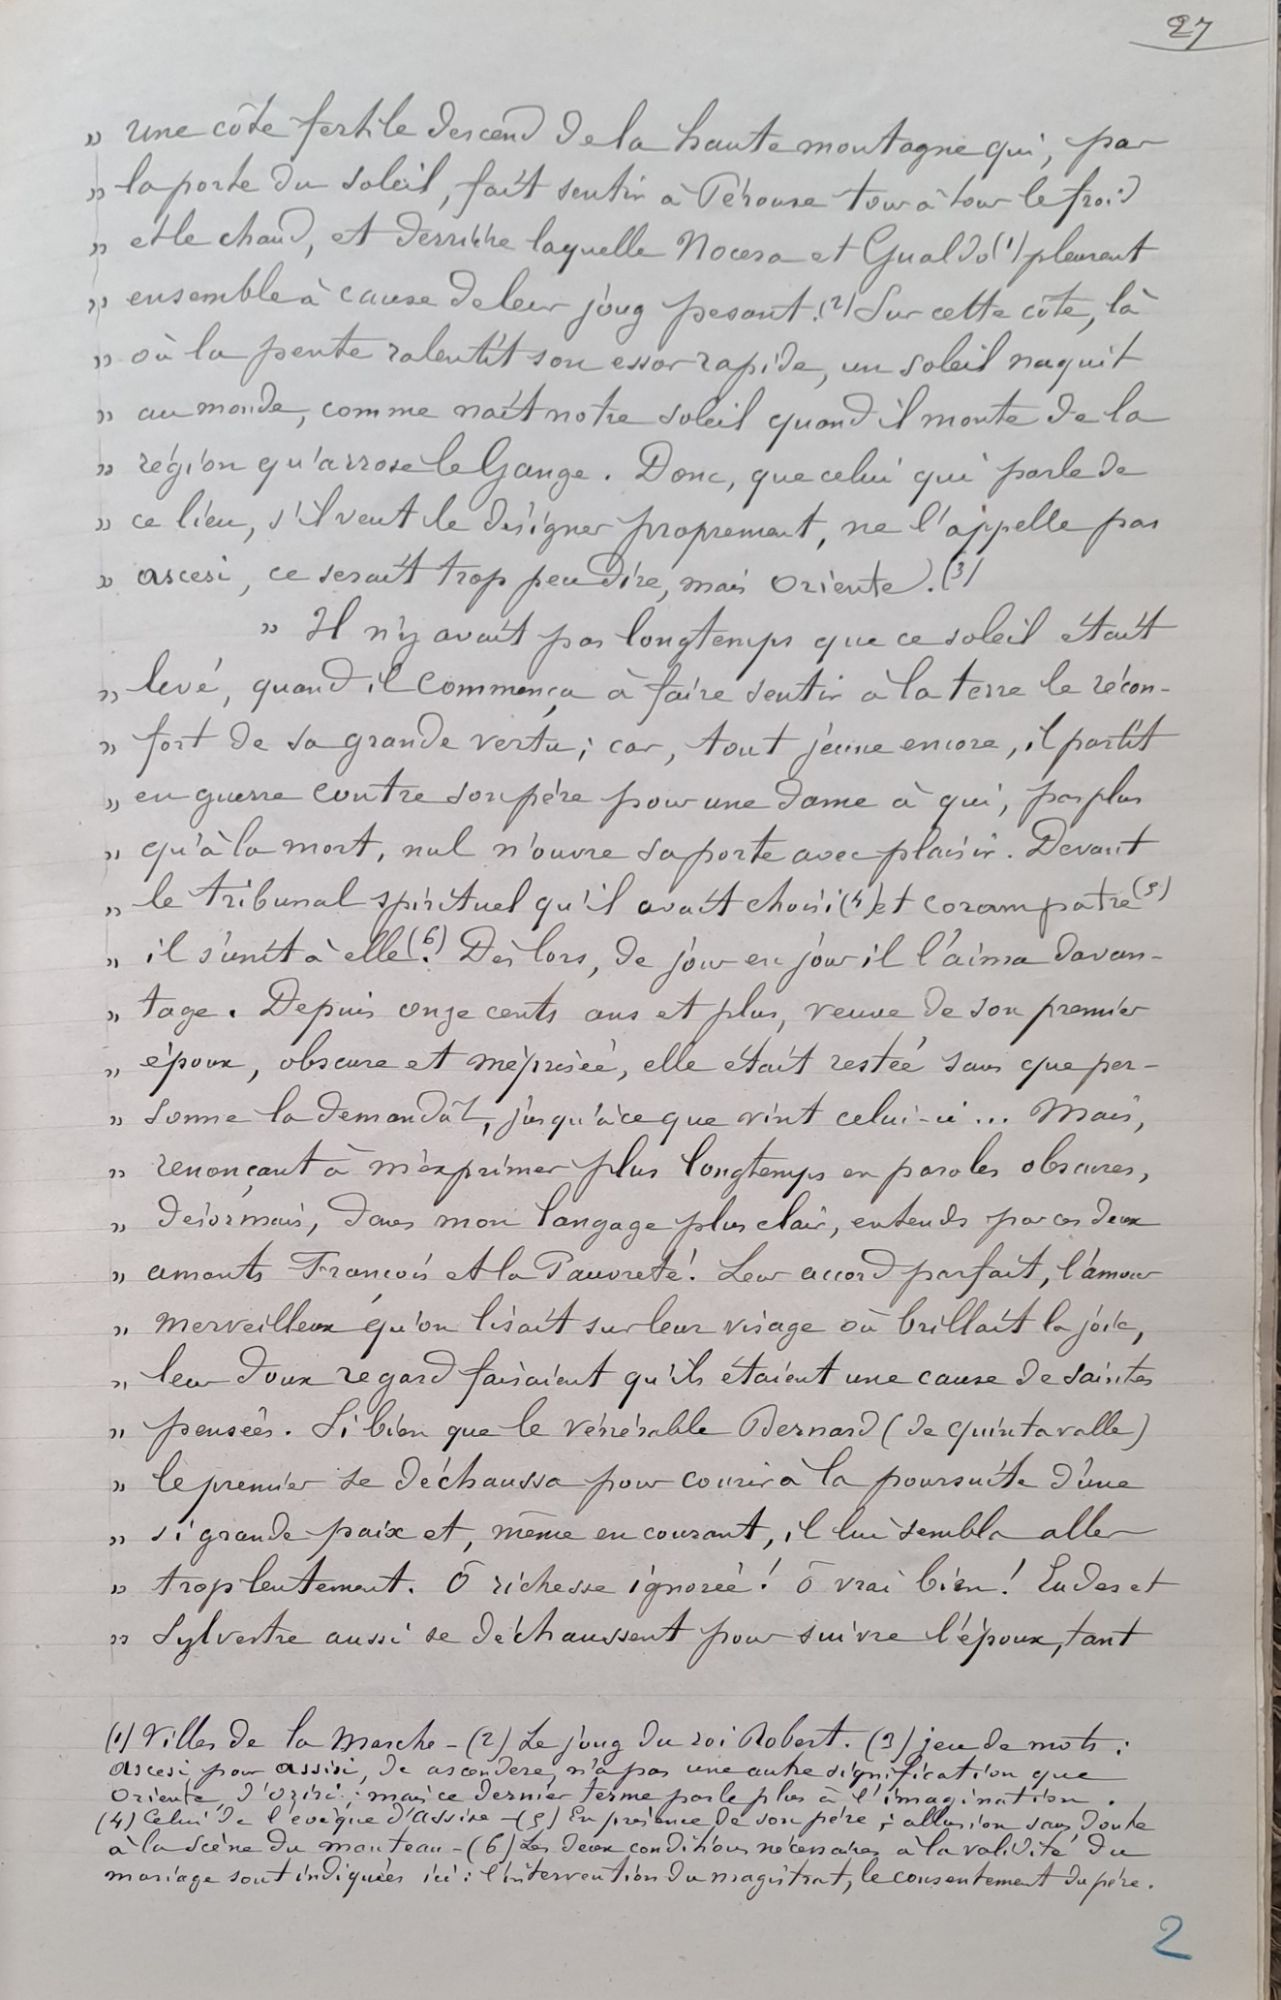 27
" une côte fertile descend de la haute montagne qui, par
" la porte du soleil, fait sentir à Pérouse tour à tour le froid
" et le chaud, et derrière laquelle Nocera et Gualdo (1) pleurent
" ensemble à cause de leur joug pesant. (2) Sur cette côte, là
" où la pente ralentit son essor rapide, un soleil naquit
" au monde, comme naît notre soleil quand il monte de la
" région qu'arrose le Gange. Donc, que celui qui parle de
" ce lieu, s'il veut le désigner proprement, ne l'appelle pas
" ascesi, ce serait trop peu dire, mais oriente). (3)
" Il n'y avait pas longtemps que ce soleil était
" levé, quand il commença à faire sentir à la terre le récon-
" fort de sa grande vertu; car, tout jeune encore, il partit
" en guerre contre son père pour une dame à qui, pas plus
" qu'à la mort, nul n'ouvre sa porte avec plaisir. Devant
" le tribunal spirituel qu'il avait choisi (4) et coram patre (5)
" il s'unit à elle (6). Dès lors, de jour en jour il l'aima davan-
" tage. Depuis onze cents ans et plus, veuve de son premier
" époux, obscure et méprisée, elle était restée sans que per-
" sonne la demandât, jusqu'à ce que vint celui-ci... Mais,
" renonçant à m'exprimer plus longtemps en paroles obscures,
" désormais, dans mon langage plus clair, entends par ces deux
" amants François et la Pauvreté. Leur accord parfait, l'amour
" merveilleux qu'on lisait sur leur visage où brillait la joie,
" leur doux regard faisaient qu'ils étaient une cause de saintes
" pensées. Si bien que le vénérable Bernard (de Quintavalle)
" le premier se déchaussa pour courir à la poursuite d'une
" si grande paix et, même en courant, il lui sembla aller
" trop lentement. Ô richesse ignorée! ô vrai bien! Eudes et
" Sylvestre aussi se déchaussent pour suivre l'époux, tant
(1) Villes de la Marche - (2) Le joug du roi Robert. (3) jeu de mots:
ascesi pour assisi, de ascendere, n'a pas une autre signification que
oriente, d'oriri; mais ce dernier terme parle plus à l'imagination.
(4) Celui de l'évêque d'Assise - (5) En présence de son père; allusion sans doute
à la scène du manteau - (6) Les deux conditions nécessaires à la validité du
mariage sont indiquées ici: l'intervention du magistrat, le consentement du père.
2